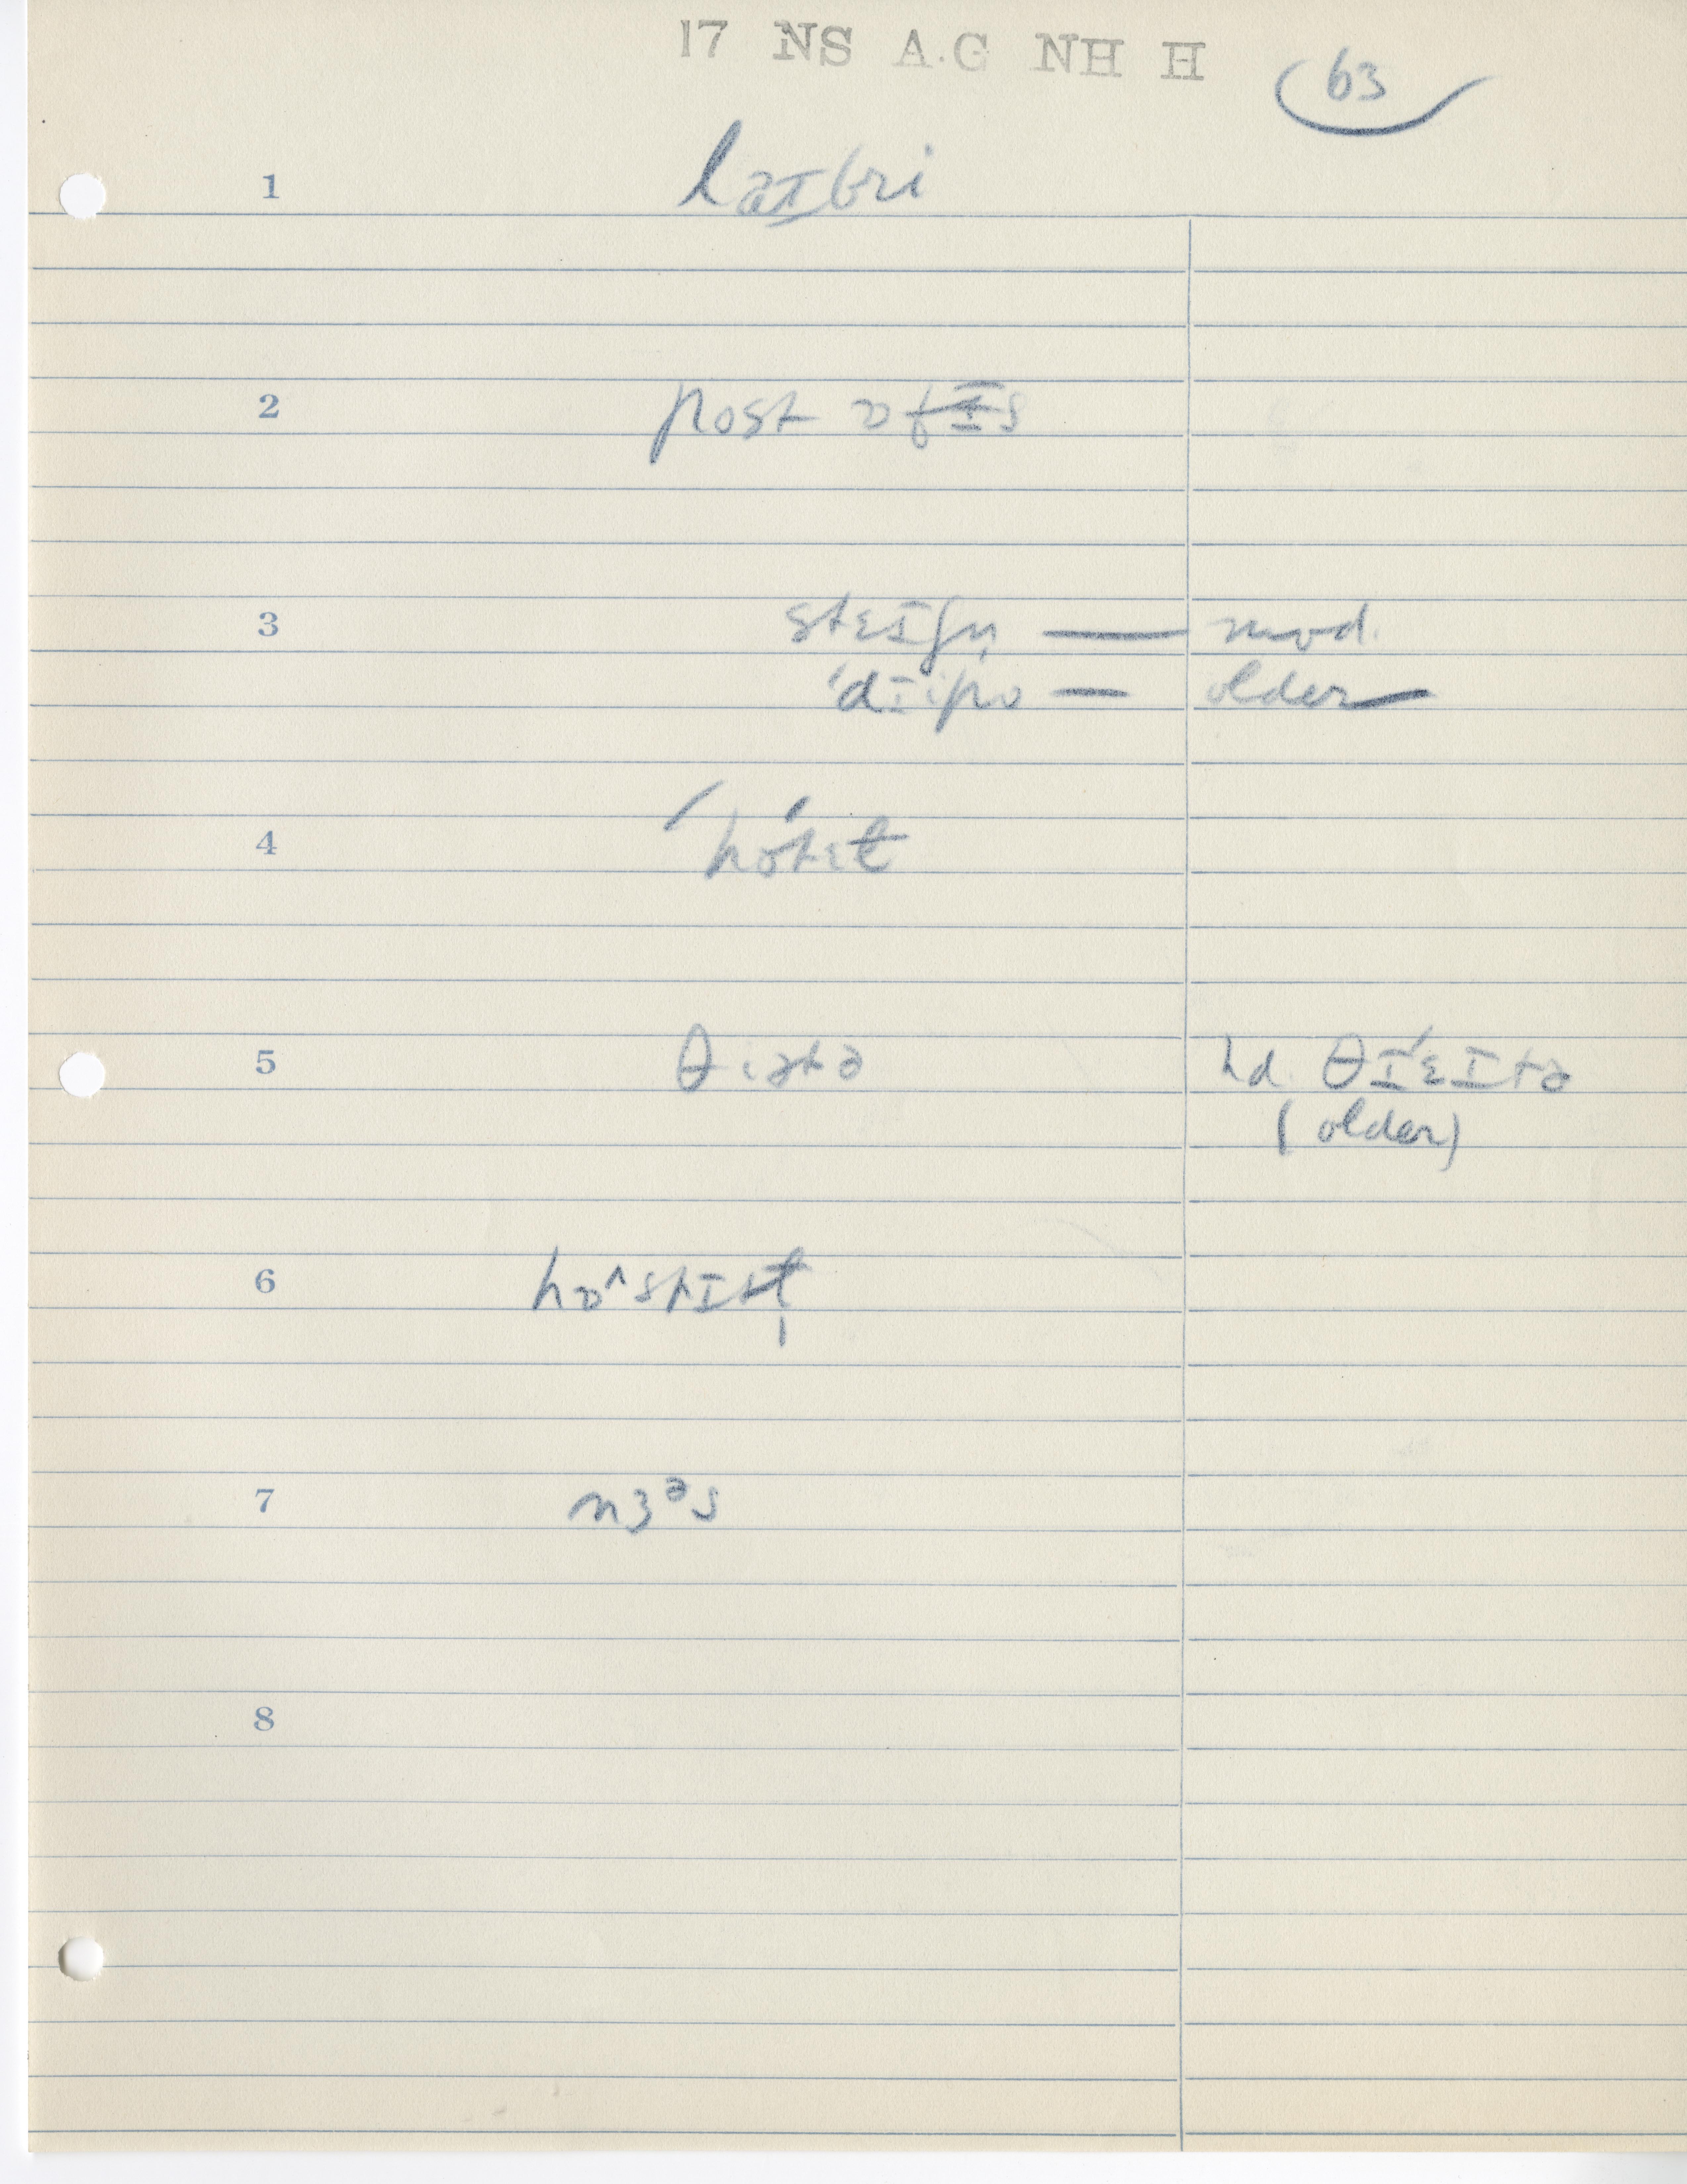 17 NS A.G NH H
63
1 laɪbri
2 post ɒfɪs
3 stɛɪʃn̩ — mod.
ˈdɪipo — older —
4 ˈhótɛɫ
5 θiətə hd. θɪˈɛɪtə
(older)
6 hɒ^spɪtɫ̩
7 nɜᵊs
8